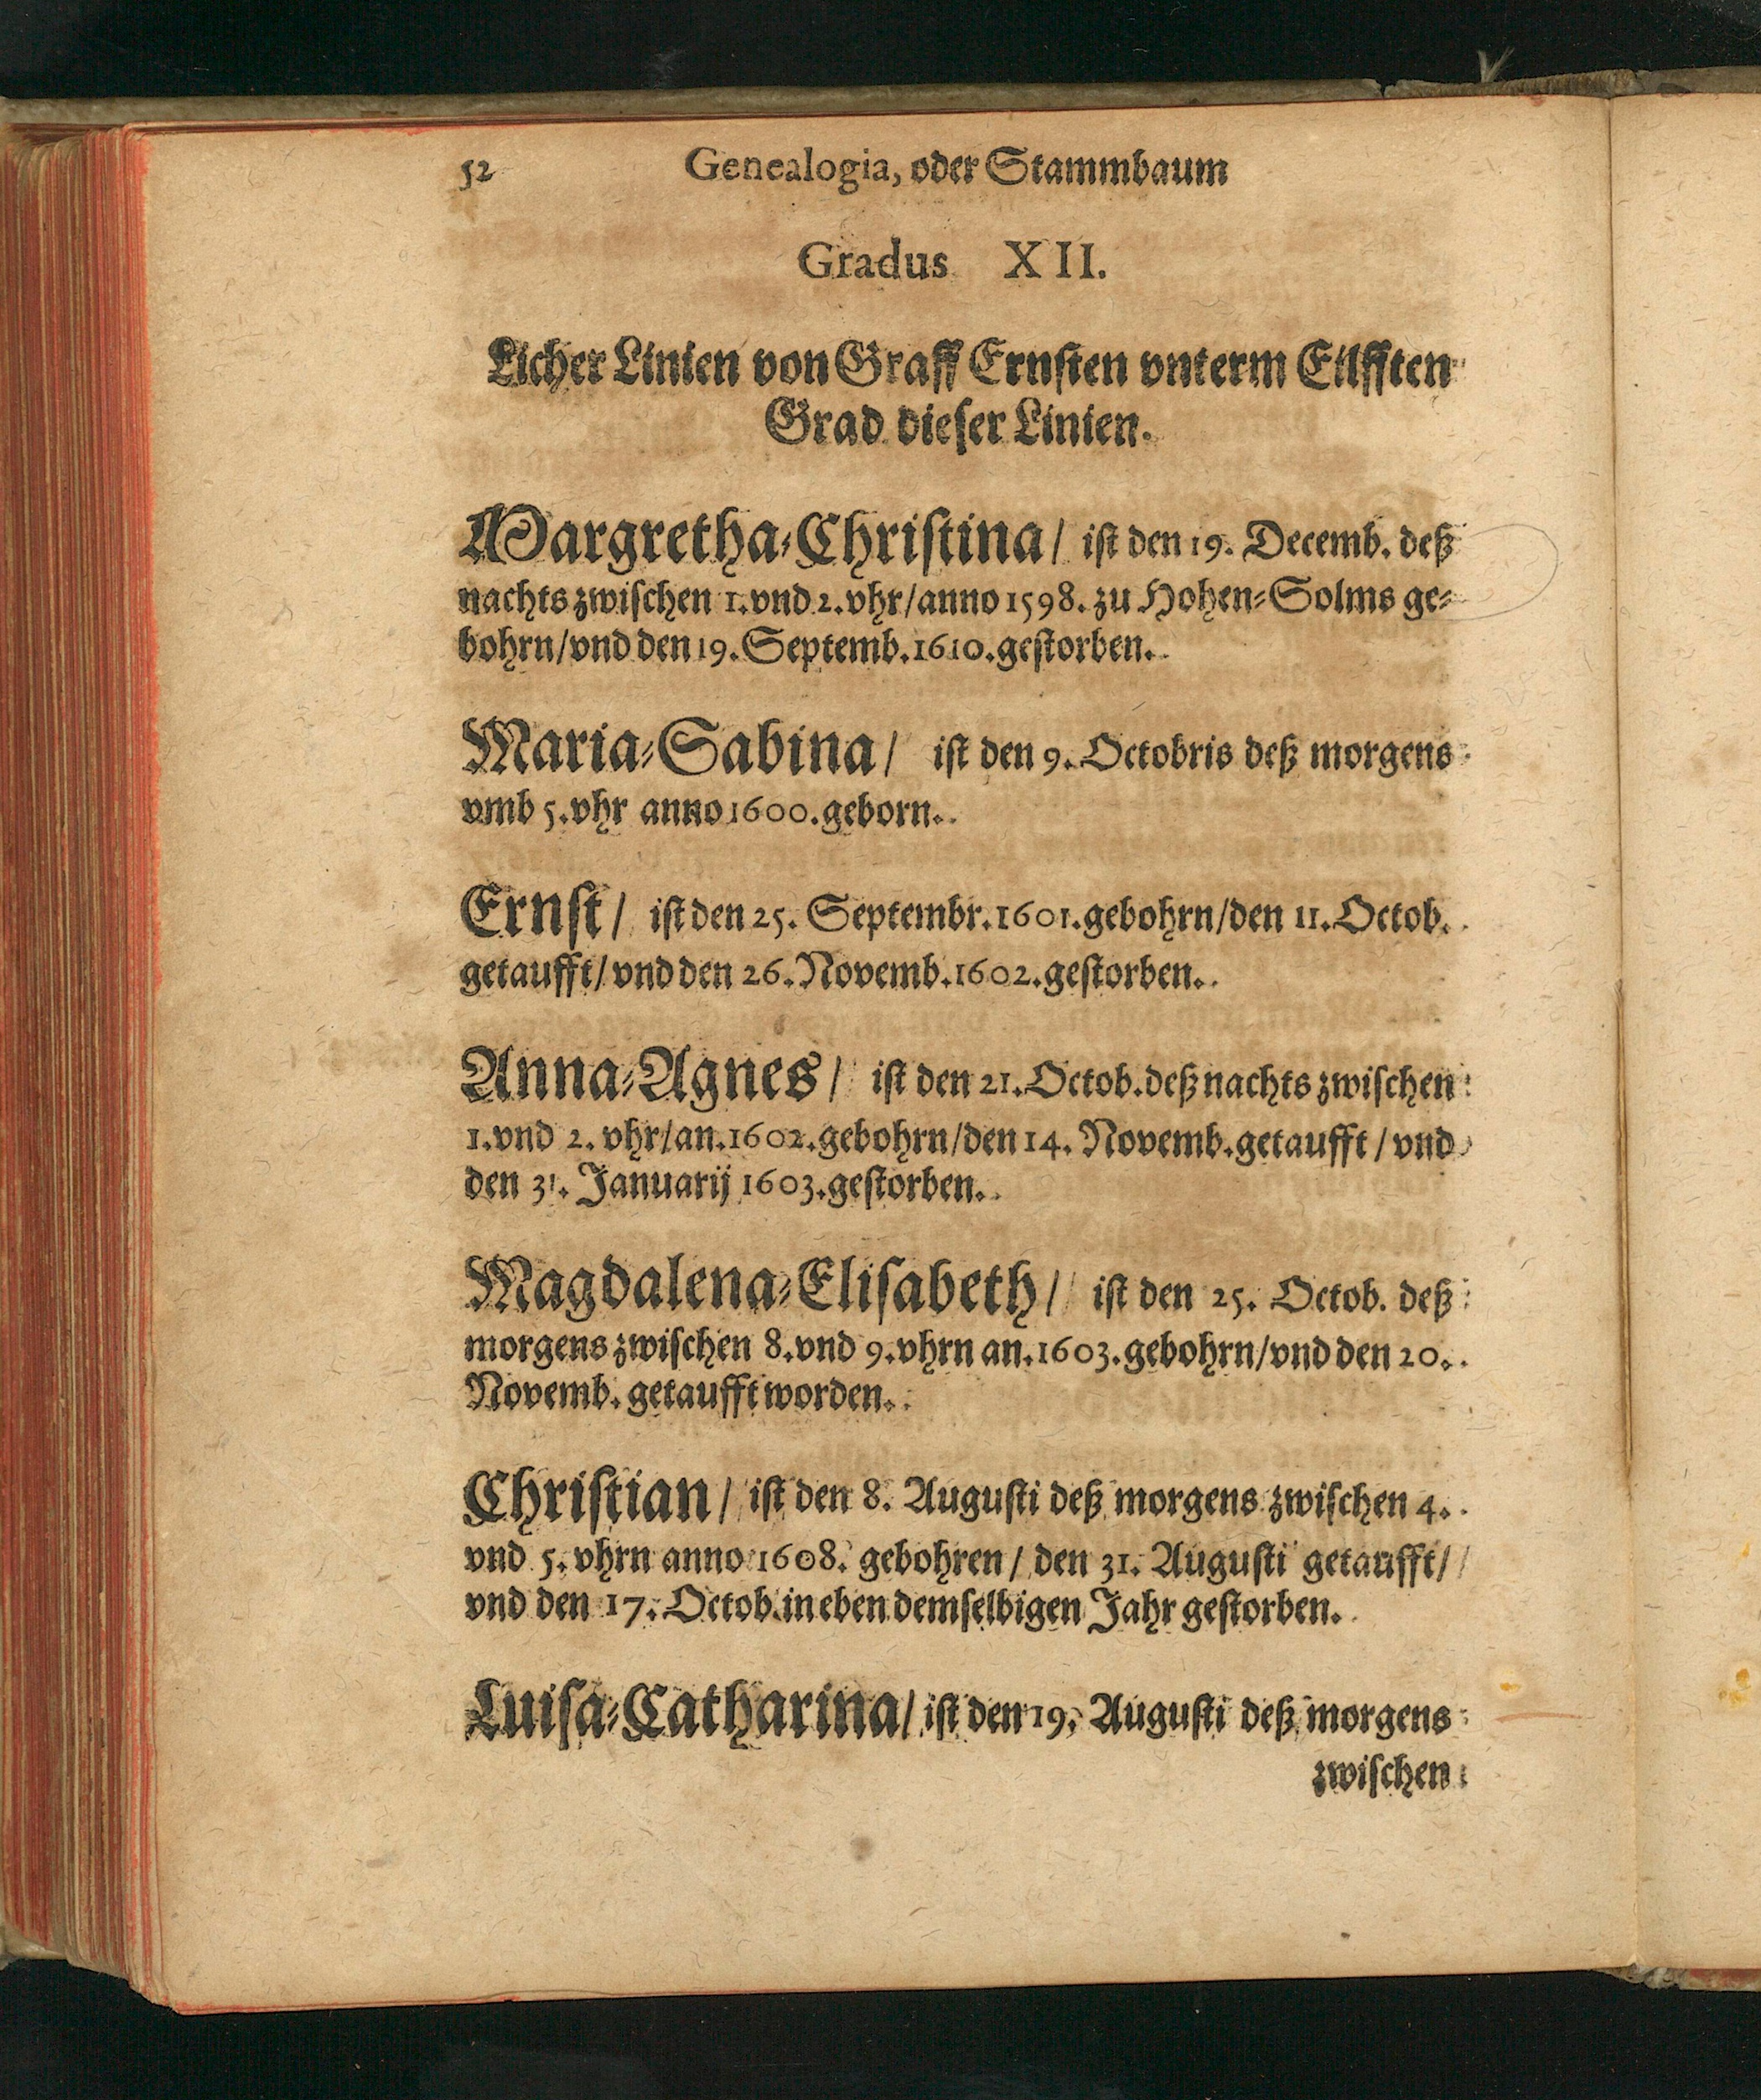 52 Genealogia, oder Stammbaum
Gradus XII.
Licher Linien von Graff Ernsten vnterm Eilfften
Grad dieser Linien.
Margretha-Christina/ ist den 19. Decemb. deß
nachts zwischen 1. vnd 2. vhr/anno 1598. zu Hohen-Solms ge-
bohrn/vnd den 19. Septemb. 1610. gestorben.
Maria-Sabina/ ist den 9. Octobris deß morgens
vmb 5. vhr anno 1600. geborn.
Ernst/ ist den 25. Septembr. 1601. gebohrn/den 11. Octob.
getaufft/vnd den 26. Novemb. 1602. gestorben.
Anna-Agnes/ ist den 21. Octob. deß nachts zwischen
1. vnd 2. vhr/an. 1602. gebohrn/den 14. Novemb. getaufft/vnd
den 31. Januarij 1603. gestorben.
Magdalena-Elisabeth/ ist den 25. Octob. deß
morgens zwischen 8. vnd 9. vhrn an. 1603. gebohrn/vnd den 20.
Novemb. getaufft worden.
Christian/ ist den 8. Augusti deß morgens zwischen 4.
vnd 5. vhrn anno 1608. gebohren/ den 31. Augusti getaufft/
vnd den 17. Octob. in eben demselbigen Jahr gestorben.
Luisa-Catharina/ ist den 19. Augusti deß morgens
zwischen